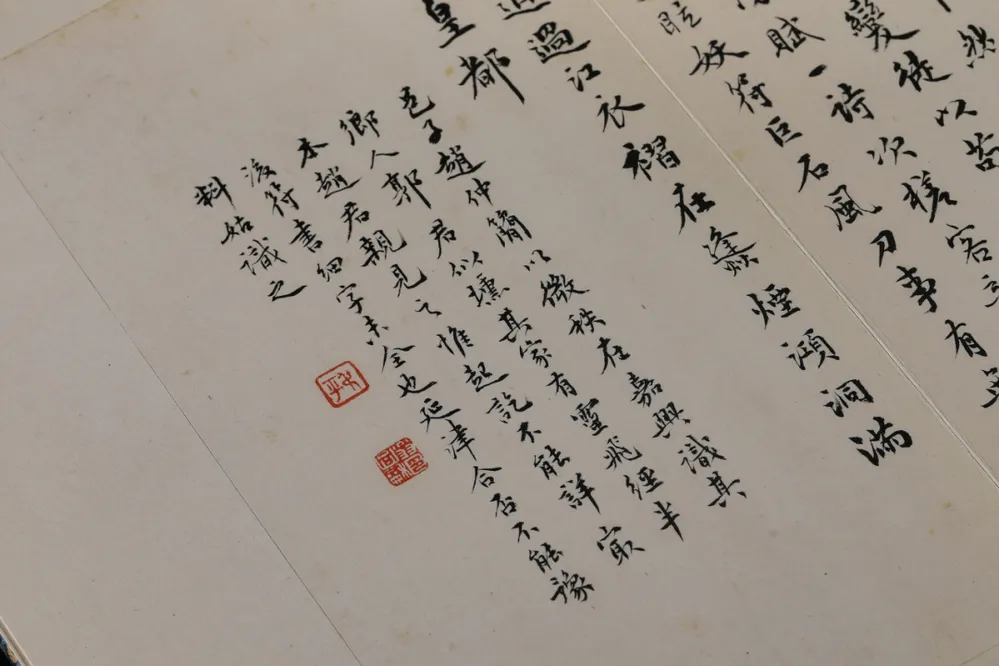 然
變徒以苦
賦一詩次槎客
眩妖符巨石風刀事有
過江衣褶在逢煙澒洞滿
皇都
邑子趙仲簡以微秩在嘉興識其
鄉人郭君似壎其家有靈飛經半
本趙君親見之惟起訖不能詳冣
後符書細字未全也延津合否不能豫
料姑識之